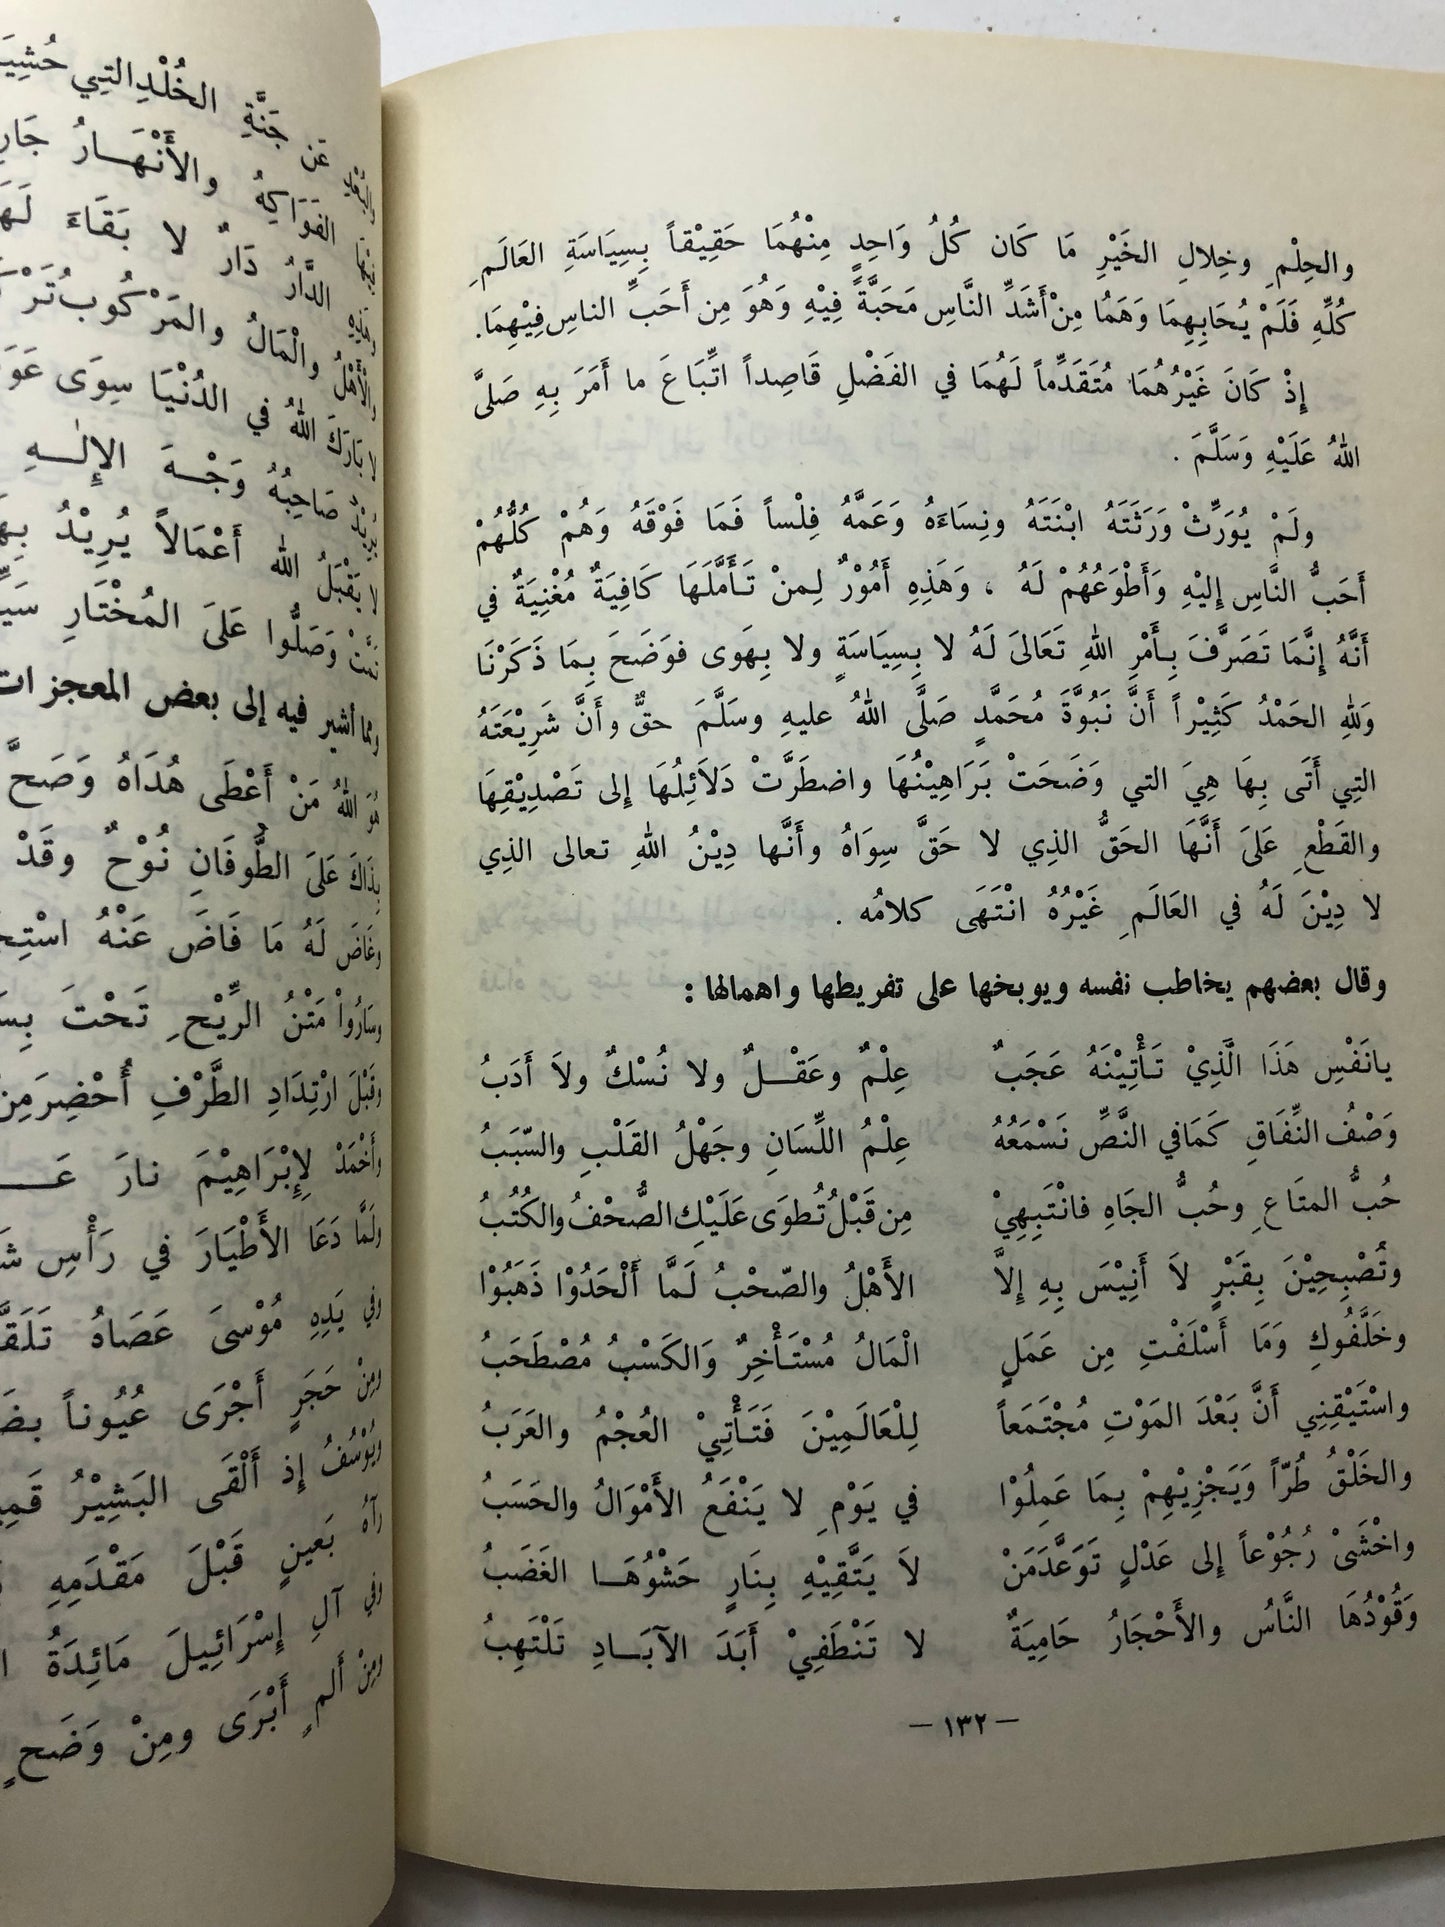 والحِلْمِ وخِلالِ الخَيْرِ مَا كَان كُلُ وَاحِدٍ مِنْهُمَا حَقِيْقاً بِسِيَاسَةِ العَالَمِ
كُلِّهِ فَلَمْ يُحَابِهِمَا وَهَمُا مِنْ أَشَدِّ النَّاسِ مَحَبَّةً فِيْهِ وَهُوَ مِن أَحَبِّ الناسِ فِيْهِمَا.
إِذْ كَانَ غَيْرُهُمَا مُتَقَدِّماً لَهُمَا في الفَضْلِ قَاصِداً اتِّبَاعَ ما أَمَرَ بِهِ صَلىَّ
اللهُ عَلَيْهِ وَسَلَّمَ .
ولَمْ يُوَرِّثْ وَرَثَتَهُ ابْنَتَهُ ونِسَاءَهُ وَعَمَّهُ فِلْساً فَمَا فَوْقَهُ وَهُمْ كُلُّهُمْ
أَحَبُّ النَّاسِ إِليْهِ وَأَطْوَعُهُمْ لَهُ ، وَهَذِهِ أَمُوْرٌ لِمنْ تَأَمَّلَهَا كَافِيَةٌ مُغْنِيَةٌ في
أَنَّهُ إِنَّمَا تَصَرَّفَ بِأَمْرِ اللهِ تَعَالىَ لَهُ لا بِسِيَاسَةٍ ولا بِهَوى فوَضَحَ بِمَا ذَكَرْنَا
وَللهِ الحَمْدُ كَثِيْراً أَنَّ نَبُوَّةَ مُحَمَّدٍ صَلَّى اللهُ عليهِ وسَلَّمَ حقٌّ وأَنَّ شَرِيْعَتَهُ
التِي أَتَى بِهَا هِيَ التي وَضَحَتْ بَرَاهِيْنُهَا واضطَرَّتْ دَلاَئِلُهَا إِلى تَصْدِيْقِهَا
والقَطْعِ عَلىَ أَنَّهَا الحَقُّ الذِي لا حَقَّ سِوَاهُ وأَنَّها دِيْنُ اللهِ تعالى الذِي
لا دِيْنَ لَهُ في العَالَمِ غَيْرُهُ انْتَهَى كلامُه .
وقال بعضهم يخاطب نفسه ويوبخها على تفريطها واهمالها :
يانَفْسِ هَذَا الَّذِيْ تَأْتِيْنَهُ عَجَبٌ عِلْمٌ وعَقْلٌ ولا نُسْكٌ ولاَ أَدَبُ
وَصْفُ النِّفَاقِ كَمَا في النَّصِّ نَسْمَعُهُ عِلْمُ اللِّسَانِ وجَهْلُ القَلْبِ والسّبَبُ
حُبُّ المتَاعِ وحُبُّ الجَاهِ فانْتَبِهِيْ مِن قَبْلُ تُطوَى عَلَيْكِ الصُّحْفُ والكُتُبُ
وتُصْبِحِيْنَ بِقَبْرٍ لاَ أَنِيْسَ بِهِ إِلاَّ الأَهْلُ والصّحْبُ لَمَّا أَلْحَدُوْا ذَهَبُوْا
وخَلَّفُوكِ وَمَا أَسْلَفْتِ مِن عَمَلٍ الْمَالُ مُسْتَأْخِرٌ وَالكَسْبُ مُصْطَحَبُ
واسْتَيْقِنِي أَنَّ بَعْدَ المَوْتِ مُجْتَمَعاً لِلْعَالَمِيْنَ فَتَأْتِيْ العُجْمُ والعَرَبُ
والخَلْقُ طُرّاً وَيَجْزِيْهِمْ بِمَا عَمِلُوْا في يَوْمِ لا يَنْفَعُ الأَمْوَالُ والحَسَبُ
واخْشَيْ رُجُوْعاً إِلى عَدْلٍ تَوَعَّدَ مَنْ لاَ يَتَّقِيْهِ بِنَارٍ حَشْوُهَا الغَضَبُ
وَقُوْدُهَا النَّاسُ والأَحْجَارُ حَامِيَةٌ لا تَنْطَفِيْ أَبَدَ الآبَادِ تَلْتَهِبُ
– ١٣٢ –
عَن جَنَّةِ الخُلْدِ التِي
الفَوَاكِهُ والأَنْهَارُ
الدَّارُ دَارٌ لا بَقَاءَ
والأَهْلُ والْمَالُ والمَرْكُوبُ
لا بَارَكَ اللهُ في الدُنْيَا سِوَى
صَاحِبُهُ وَجْهَ الإِلهِ
لا يَقْبَلُ الله أَعْمَالاً يُرِيْدُ
تَمَّتْ وَصَلُّوا عَلىَ المُخْتَارِ
ومما أشير فيه إلى بعض المعجزات
هُوَ اللهُ مَنْ أَعْطَى هُدَاهُ وَصَحَّ
بِذَاكَ عَلىَ الطُّوفَانِ نُوْحٌ وقَدْ
وغَاضَ لَهُ مَا فَاضَ عَنْهُ
وسَارُواْ مَتْنُ الرِّيْحِ تَحْتَ
وقَبْلَ ارْتِدَادِ الطَّرْفِ أُحْضِرَ مِنْ
وأَخْمَدْ لِإِبْرَاهِيْمَ نارَ
ولَمَّا دَعَا الأَطْيَارَ في رَأْسِ
وفي يَدِهِ مُوْسىَ عَصَاهُ
ومِنْ حَجَرٍ أَجْرَى عُيُوناً
ويُوْسُفُ إِذ أَلْقَى البَشِيْرُ
رَآهُ بَعينٍ قَبْلَ مَقْدَمِهِ
وفي آلِ إِسْرَائِيلَ مَائِدَةُ
ومِنْ أَلمٍ أَبْرَى ومِنْ وَضَحٍ